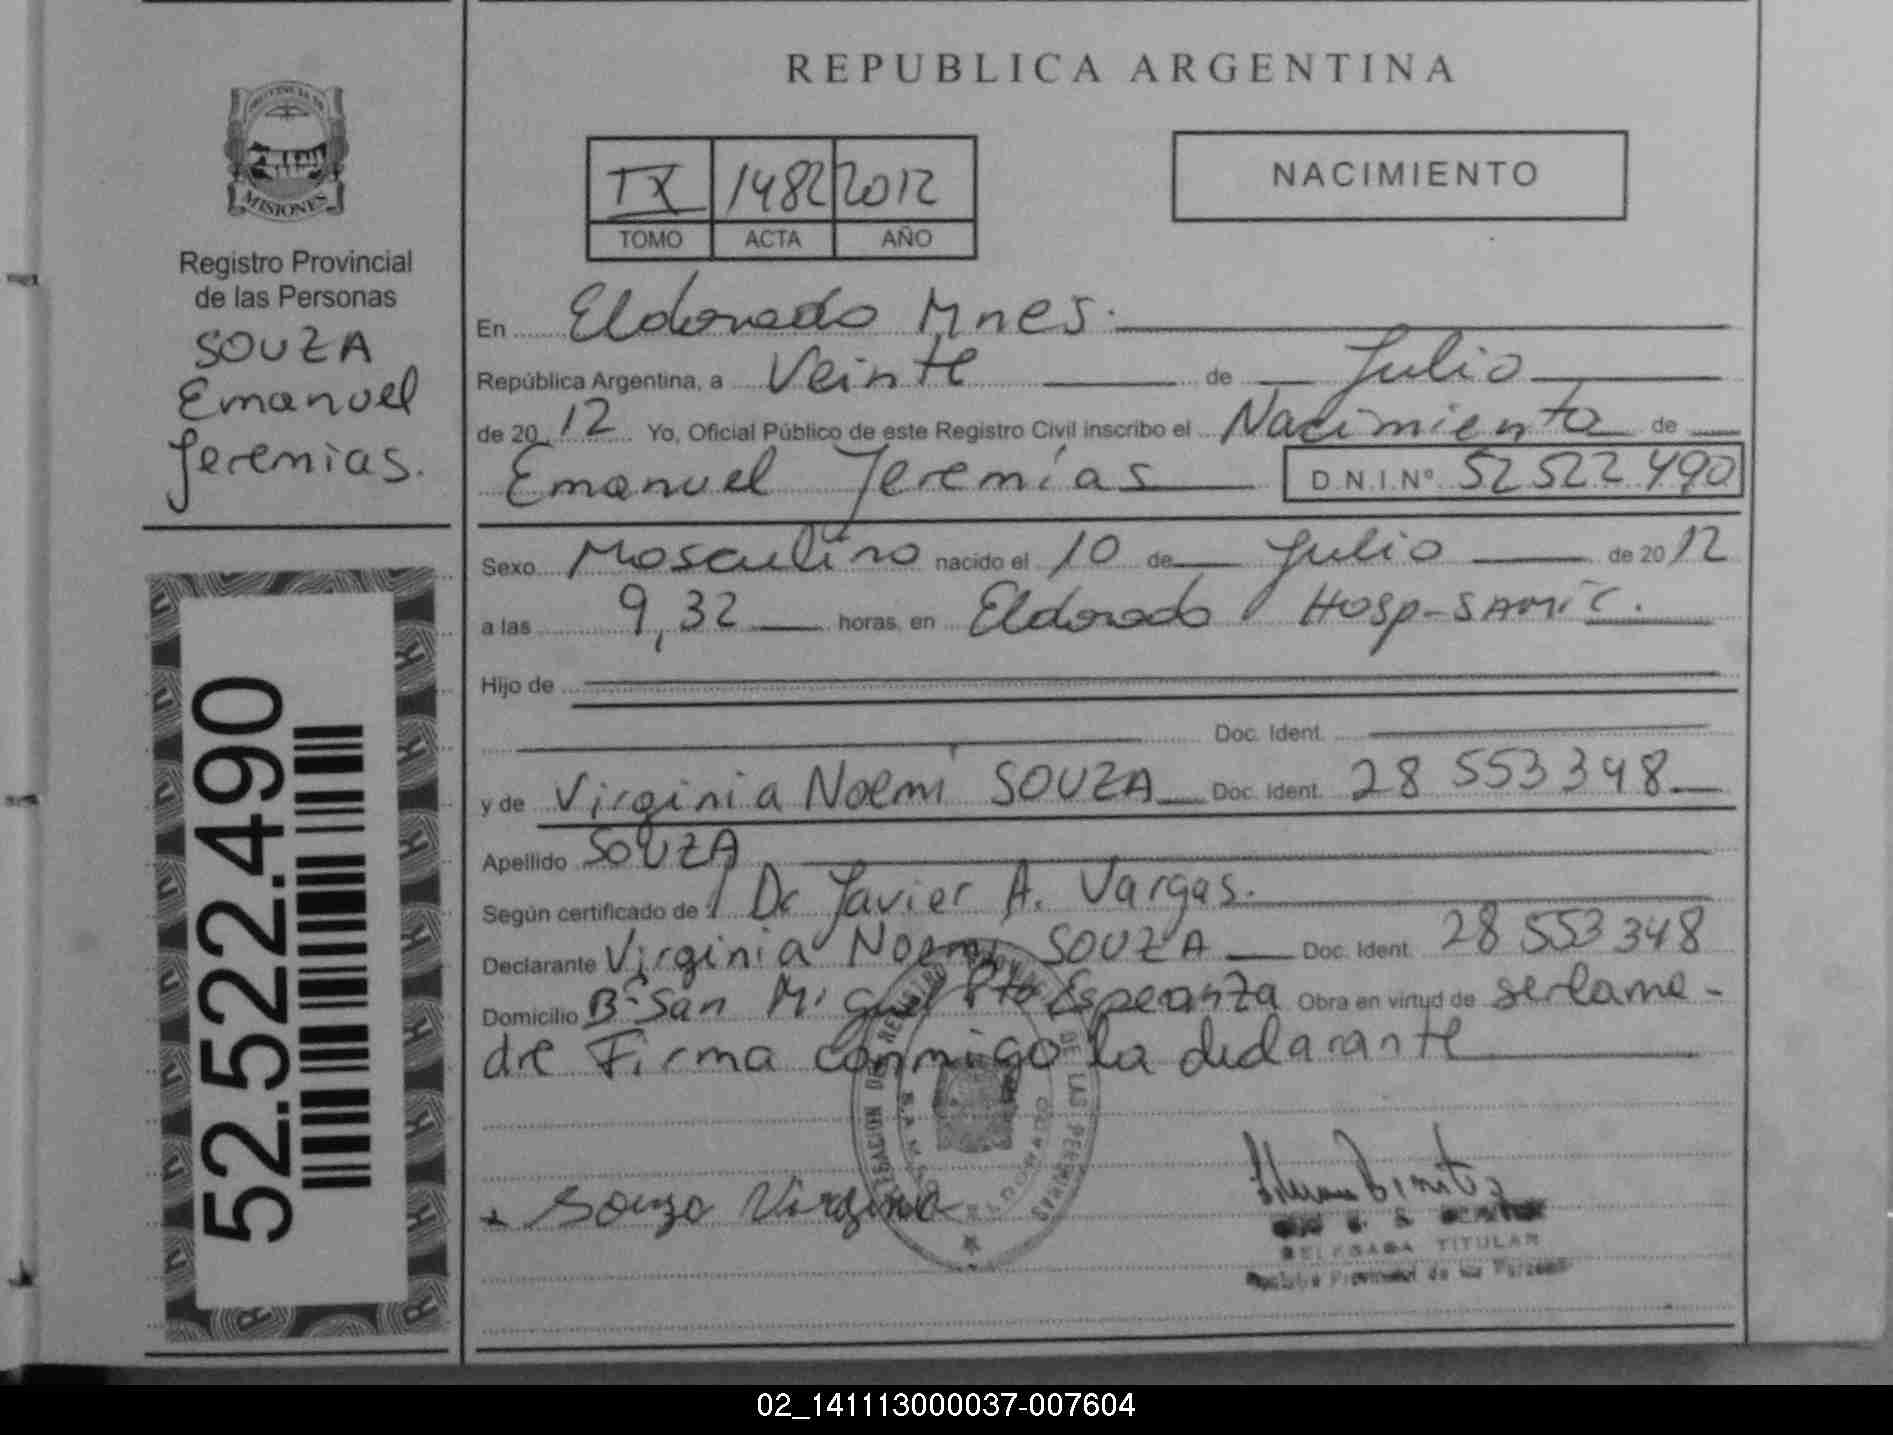 PROVINCIA DE
MISIONES
Registro Provincial
de las Personas
SOUZA
Emanuel
Jeremias.
52.522.490
REPUBLICA ARGENTINA
IX 1482 2012
TOMO ACTA AÑO
NACIMIENTO
En Eldorado Mnes.
República Argentina, a Veinte de Julio
de 20 12 Yo, Oficial Público de este Registro Civil inscribo el Nacimiento de
Emanuel Jeremías D.N.I.Nº 52522490
Sexo Masculino nacido el 10 de Julio de 20 12
a las 9,32 horas, en Eldorado Hosp-SAMIC.
Hijo de
Doc. Ident.
y de Virginia Noemí SOUZA Doc. Ident. 28 553348
Apellido SOUZA
Según certificado de Dr Javier A. Vargas.
Declarante Virginia Noemi SOUZA Doc. Ident. 28 553 348
Domicilio Bº San Miguel Pto Esperanza Obra en virtud de serlama-
dre Firma conmigo la declarante
DE LAS PERSONAS
ELDORADO
Souza Virginia
DELEGADA TITULAR
Registro Provincial de las Personas
02_141113000037-007604